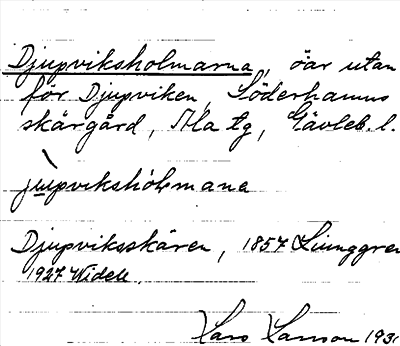 Djupviksholmarna, öar utan
för Djupviken, Söderhamns
skärgård, Ala tg, Gävleb. l.
jụupviksholmana
Djupviksskären, 1857 Ljunggren
1927 Widell.
Lars Larsson 1931